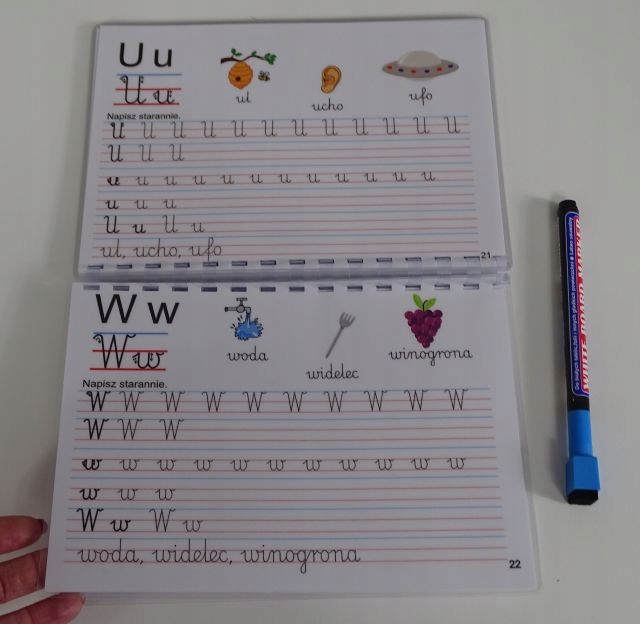 U u
U u
ul
ucho
ufo
Napisz starannie.
U U U U U U U U U U U U
U U U
u u u u u u u u u u u u
u u u
U u U u
ul, ucho, ufo
21
W w
W w
woda
widelec
winogrona
Napisz starannie.
W W W W W W W W W W
W W W
w w w w w w w w w w w
w w w
W w W w
woda, widelec, winogrona
22